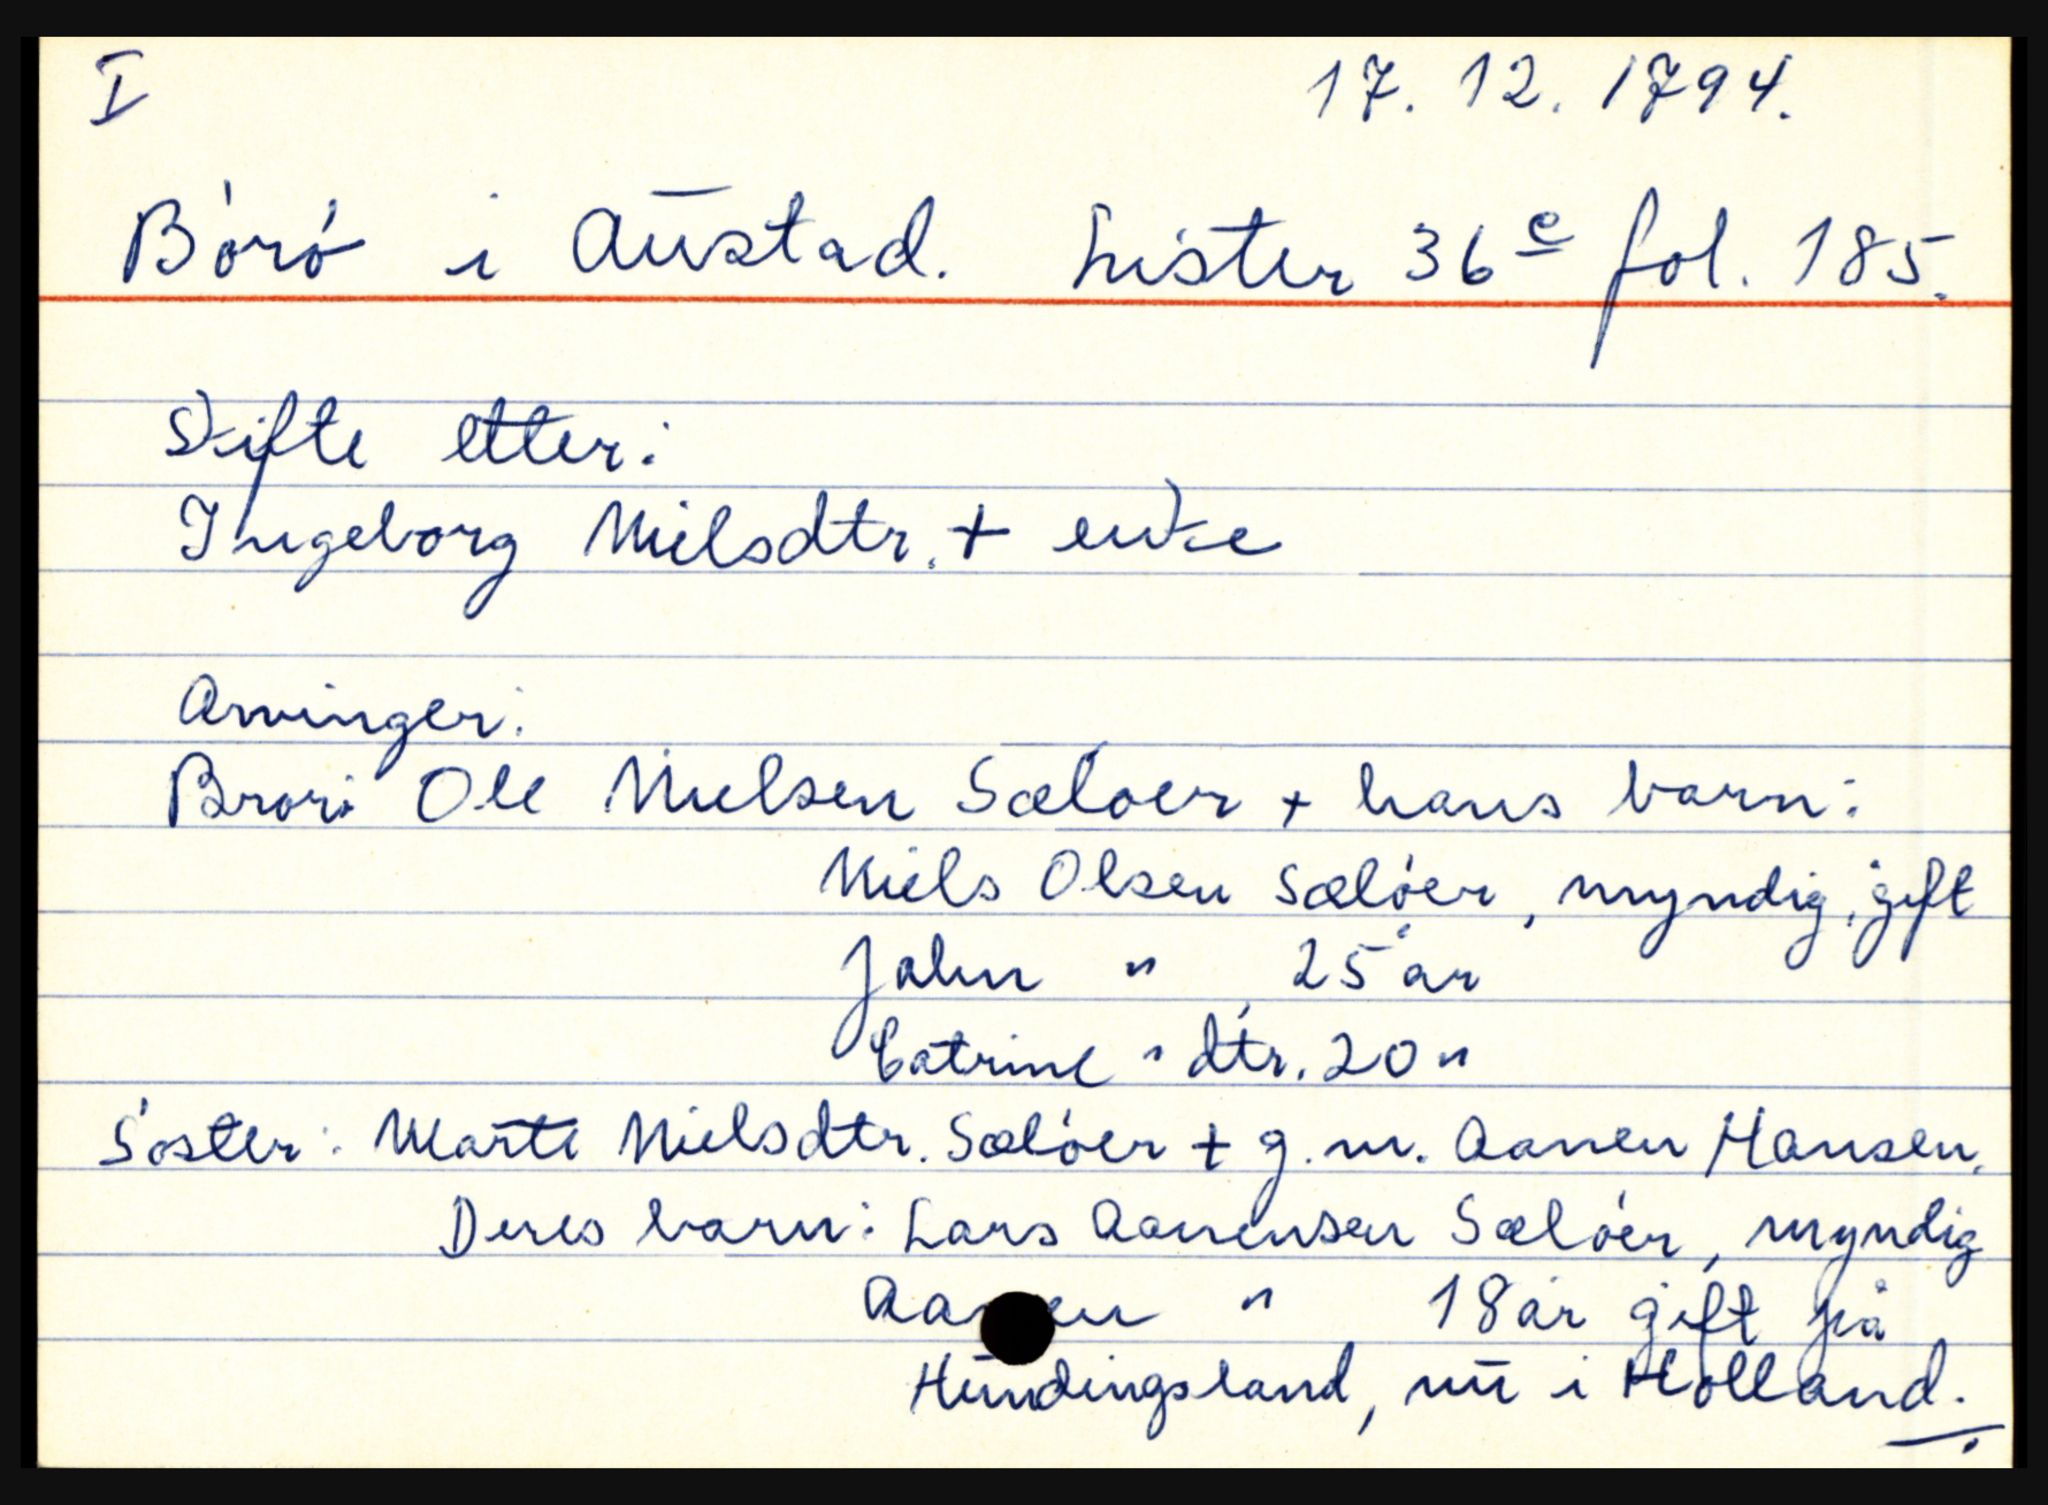 I 17. 12. 1794.
Börö i Austad. Lister 36 e fol. 185.
Skifte etter:
Ingeborg Nielsdtr. + enke
Arvinger:
Bror: Ole Nielsen Sæløer + hans barn:
Niels Olsen Sæløer, myndig, gift
Jahn " 25 år
Catrine " dtr. 20 "
Søster: Marte Nielsdtr. Sæløer + g. m. Aanen Hansen.
Deres barn: Lars Aanensen Sæløer, myndig
Aanen " 18 år gift på
Hundingsland, nu i Holland.